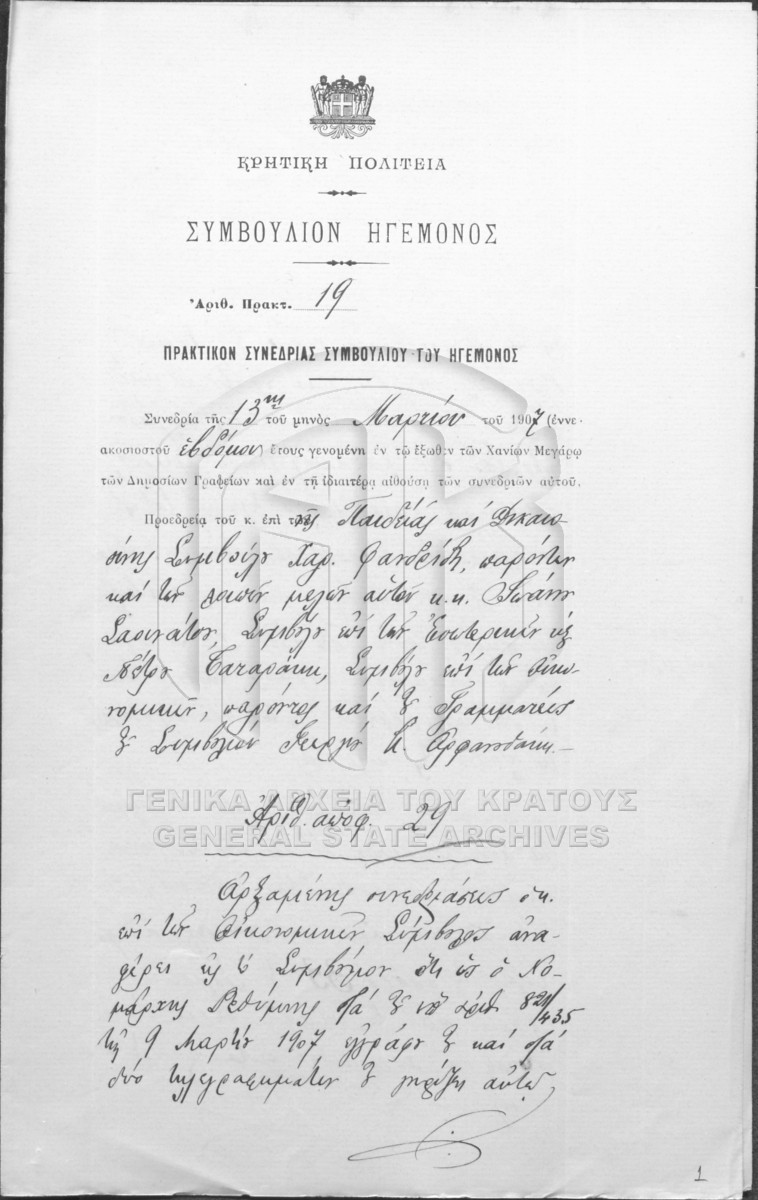 ΚΡΗΤΙΚΗ ΠΟΛΙΤΕΙΑ
ΣΥΜΒΟΥΛΙΟΝ ΗΓΕΜΟΝΟΣ
Ἀριθ. Πρακτ. 19
ΠΡΑΚΤΙΚΟΝ ΣΥΝΕΔΡΙΑΣ ΣΥΜΒΟΥΛΙΟΥ ΤΟΥ ΗΓΕΜΟΝΟΣ
Συνεδρία τῆς 13ης τοῦ μηνὸς Μαρτίου τοῦ 1907 (ἐννε-
ακοσιοστοῦ ἑβδόμου) ἔτους γενομένη ἐν τῷ ἔξωθεν τῶν Χανίων Μεγάρῳ
τῶν Δημοσίων Γραφείων καὶ ἐν τῇ ἰδιαιτέρᾳ αἰθούσῃ τῶν συνεδριῶν αὐτοῦ.
Προεδρείᾳ τοῦ κ. ἐπὶ τῆς Παιδείας καὶ Δικαιο-
σύνης Συμβούλου Χαρ. παρόντων
καὶ τῶν λοιπῶν μελῶν αὐτοῦ κ.κ. Ἰωάν.
Συμβούλου ἐπὶ τῶν Ἐσωτερικῶν
Πέτρου Συμβούλου ἐπὶ τῶν Οἰκο-
νομικῶν, παρόντος καὶ τοῦ Γραμματέως
τοῦ Συμβουλίου Γεωργίου
Ἀριθ. ἀποφ. 29
Ἀρξαμένης συνεδριάσεως ὁ κ.
ἐπὶ τῶν Οἰκονομικῶν Σύμβουλος ἀνα-
φέρει εἰς τὸ Συμβούλιον ὅτι ὁ Νο-
μάρχης Ρεθύμνης διὰ τοῦ ὑπ' ἀριθ. 821/435
τῆς 9 Μαρτίου 1907 ἐγγράφου του καὶ διὰ
δύο τηλεγραφημάτων του γνωρίζει αὐτῷ
1
ΓΕΝΙΚΑ ΑΡΧΕΙΑ ΤΟΥ ΚΡΑΤΟΥΣ
GENERAL STATE ARCHIVES